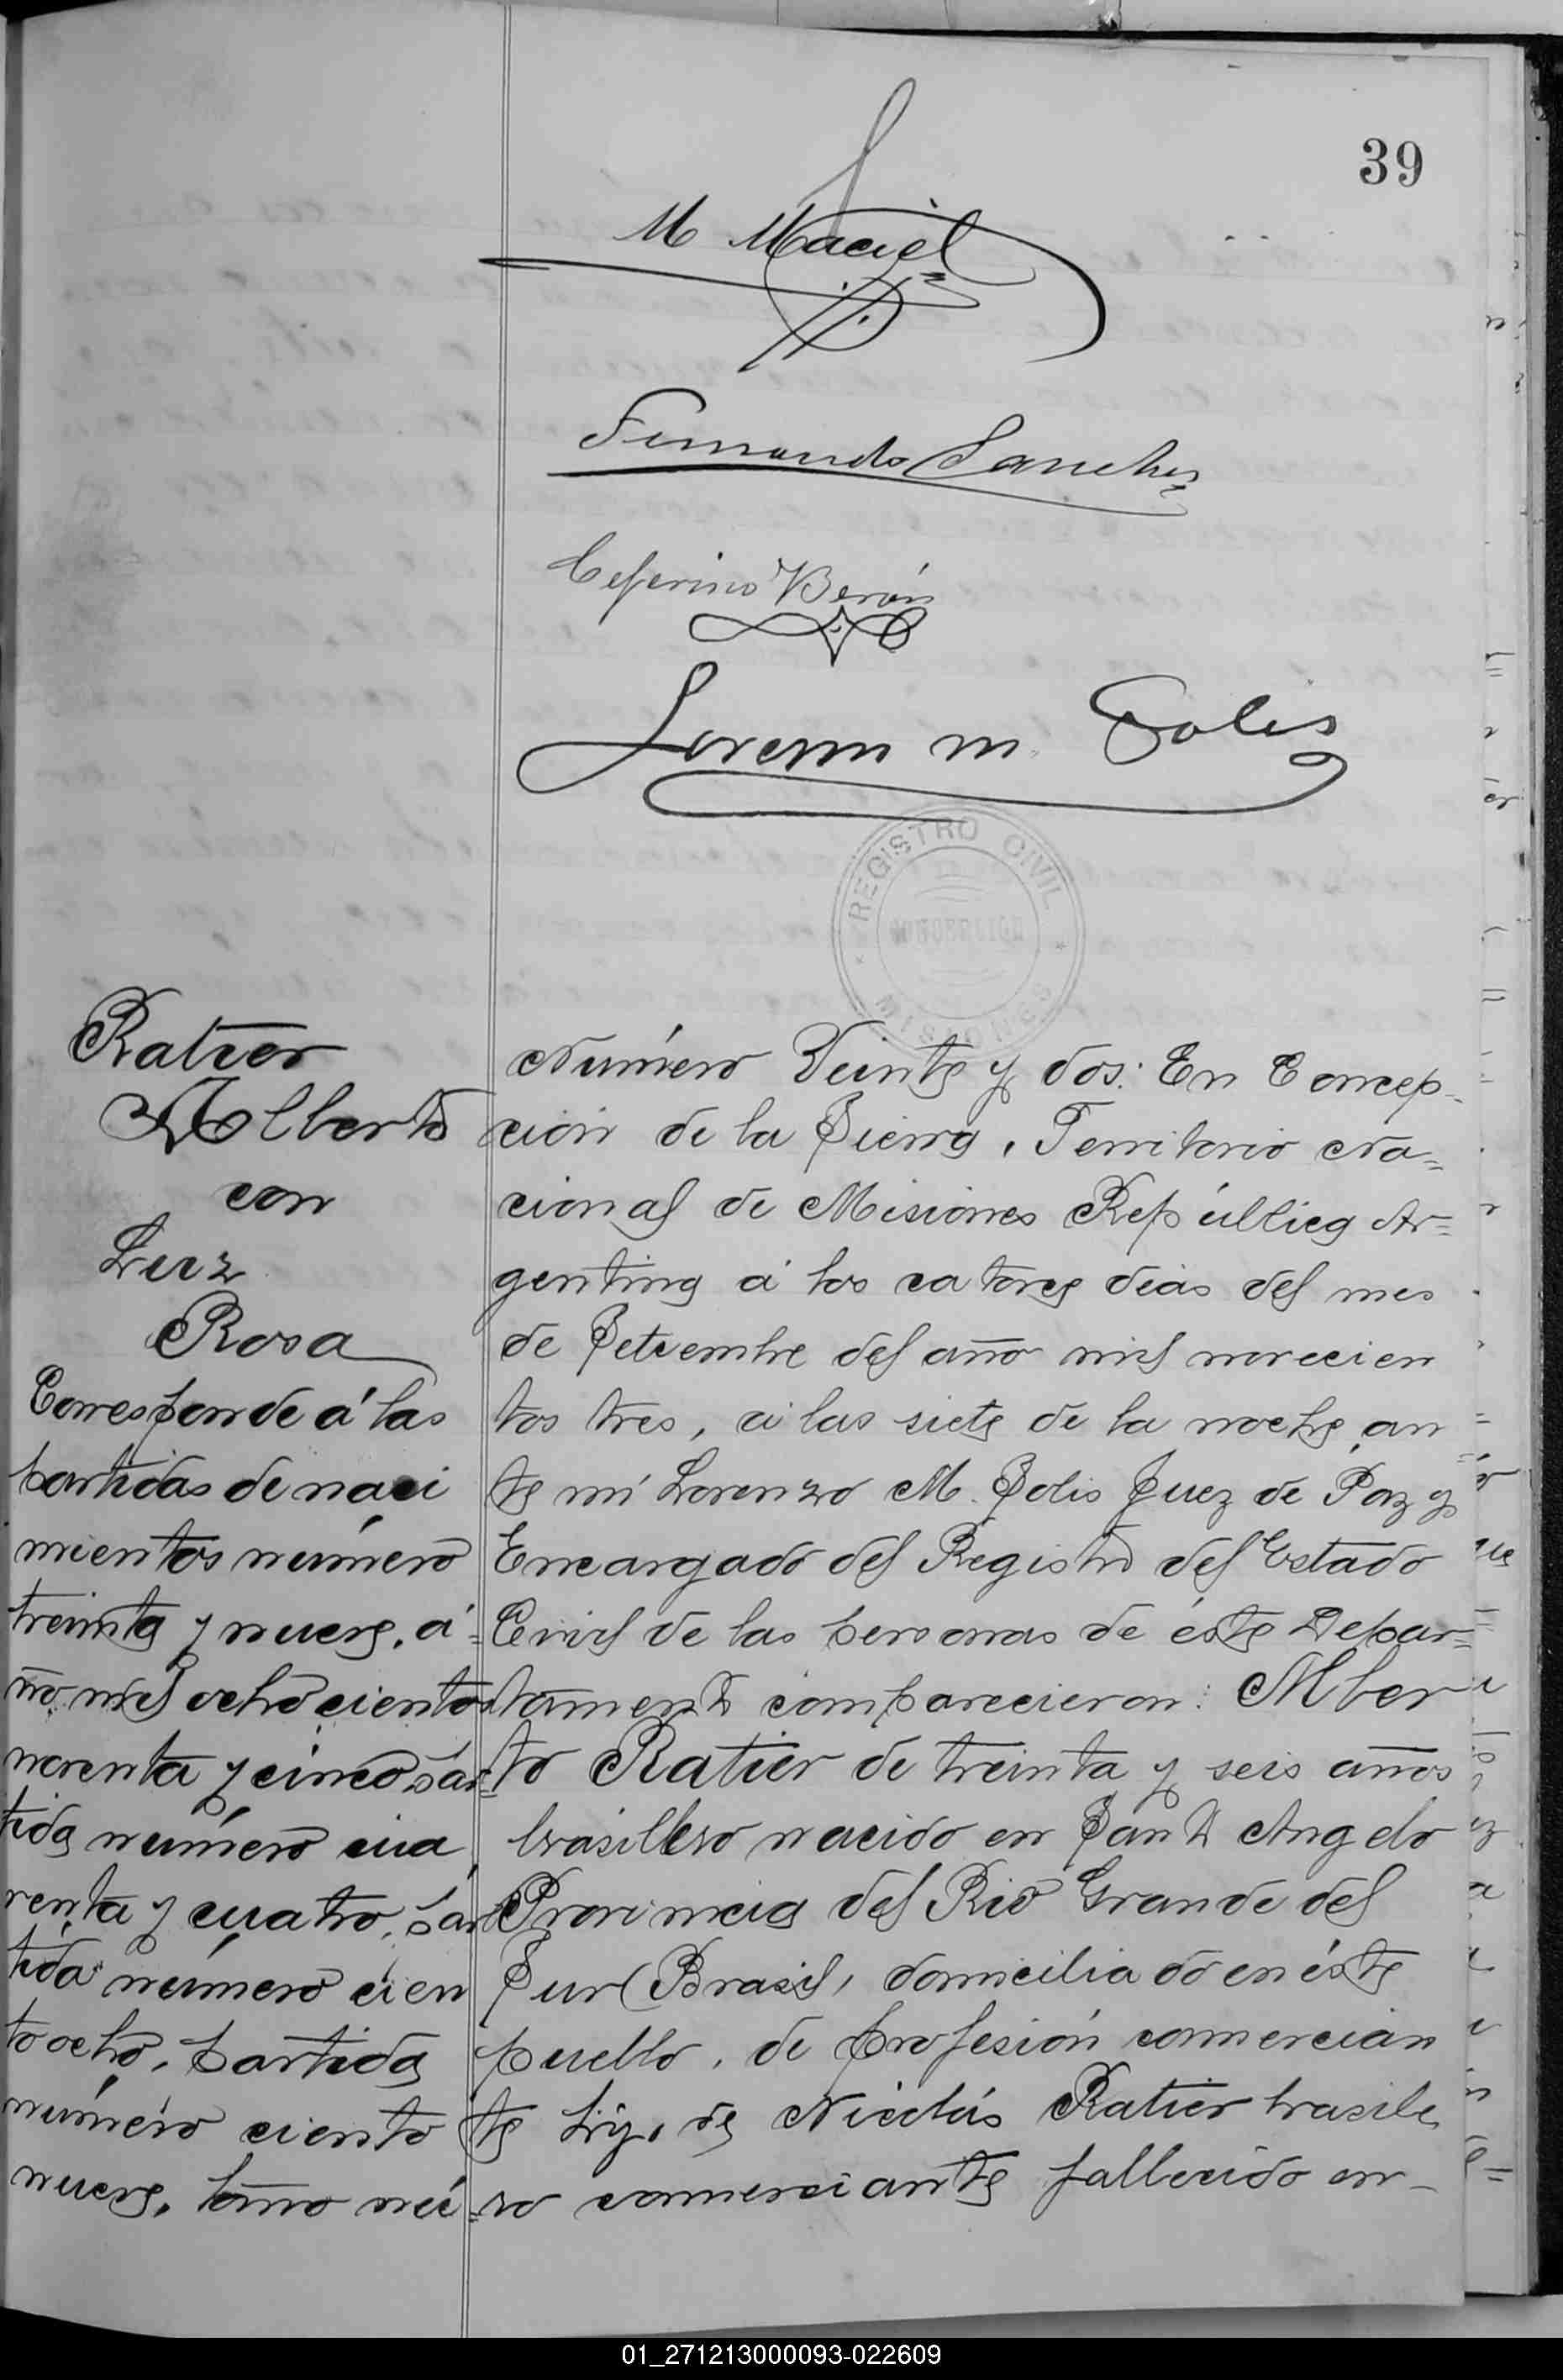 39
M Maciel
Fernando Sanchez
Ceferino Verón
Lorenzo M. Solis
REGISTRO CIVIL
MISIONES
Ratier
Alberto
con
Luz
Rosa
Corresponde á las
partidas de naci
mientos número
treinta y nueve, a=
ño mil ochocientos
noventa y cinco par=
tida número cua
renta y cuatro, par
tida número cien
to ocho, partida
número ciento
nueve, tomo nú=
Número Veinte y dos: En Concep-
ción de la Sierra, Territorio Na=
cional de Misiones República Ar=
gentina á los catorce dias del mes
de Setiembre del año mil novecien
tos tres, á las siete de la noche, an
te mi Lorenzo M. Solis Juez de Paz y
Encargado del Registro del Estado
Civil de las personas de éste Depar=
tamento comparecieron: Alber
to Ratier de treinta y seis años
brasillero nacido en Santo Angelo
Provincia del Rio Grande del
Sur (Brasil, domiciliado en éste
pueblo, de profesión comercian
te hijo de Nicolás Ratier brasile
ro comerciante fallecido en-
01_271213000093-022609